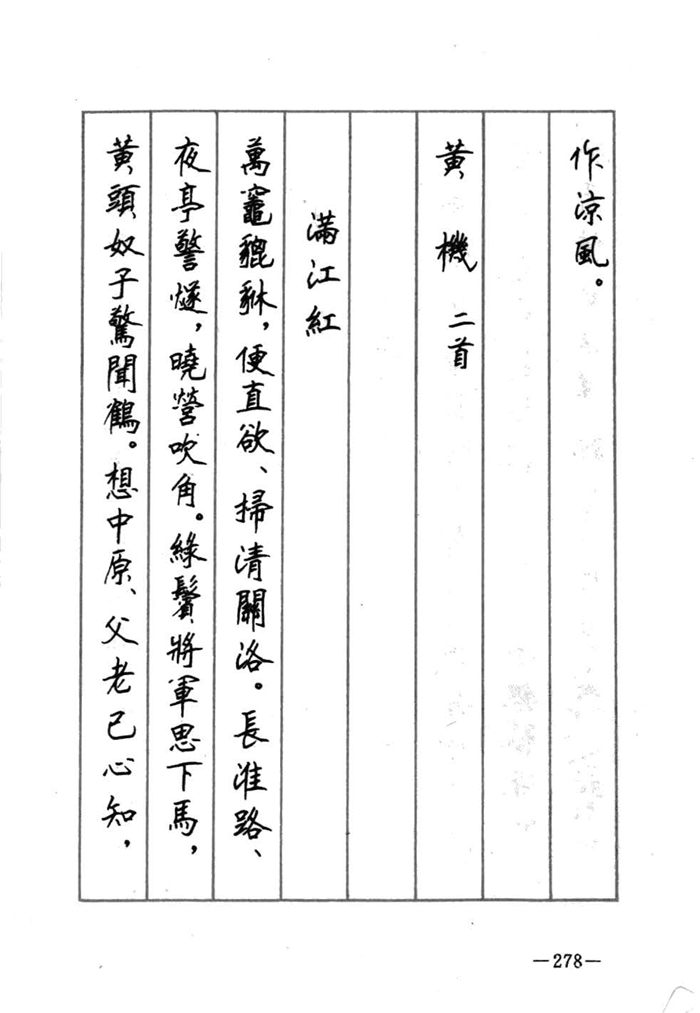 作涼風。
黄機 二首
滿江紅
萬竈貔貅，便直欲、掃清關洛。長淮路、
夜亭警燧，曉營吹角。綠鬢將軍思下馬，
黄頭奴子驚聞鶴。想中原、父老已心知，
—278—